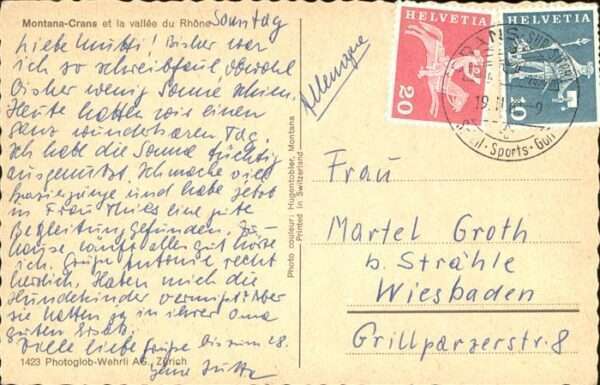 Montana-Crans et la vallée du Rhône
Sonntag
Liebe Mutti! Bisher war
ich so schreibfaul, obwohl
bisher wenig Sonne schien.
Heute hatten wir einen
ganz wunderbaren Tag.
Ich habe die Sonne tüchtig
ausgenutzt. Ich mache viel
Spaziergänge und habe jetzt
in Frau Thies eine gute
Begleitung gefunden. Zu-
hause läuft alles gut höre
ich. Grüße Antonie recht
herzlich. Haben mich die
Hundekinder vermißt? Aber
sie hatten ja in ihrer Oma
guten Ersatz.
Viele liebe Grüße bis zum 28.
Deine Jutta
1423 Photoglob-Wehrli AG, Zürich
Photo couleur: Hugentobler, Montana
Printed in Switzerland
Allemagne
HELVETIA
20
HELVETIA
10
CRANS
19. II.
-9
-Sports-Golf
Frau
Martel Groth
b. Strähle
Wiesbaden
Grillparzerstr. 8